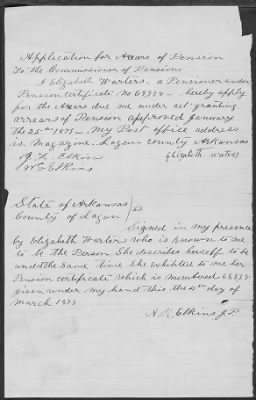 Application for Arears of Pension
To the Commissioner of Pensions
I Elizabeth Warters. a Pensioner under
Pension certificate No 68938 - hereby apply
for the Arears due me under act granting
arrears of Pension Approved January
the 25th 1879 - My Post office address
is. Magazine. Logan county Arkansas
Elizabeth waters
Elkins
Elkins
State of Arkansas
County of Logan } SS
Signed in my presence
by Elizabeth Warters who is known to me
to be the Person She describes herself to be
and the Same time She exhibited to me her
Pension certificate which is numbered 68938
given under my hand this the 4th day of
March 1879
Elkins J.P.